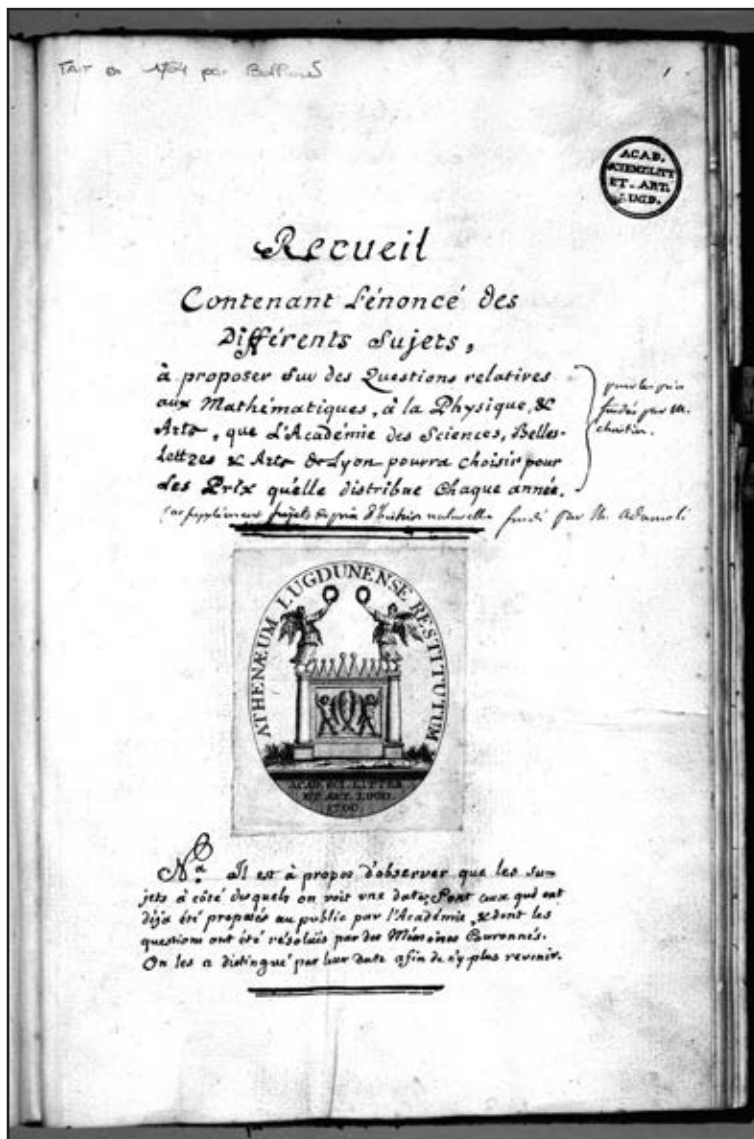 Fait en 1764 par
1
ACAD.
SCIENT. LITT.
ET. ART.
LUGD.
Recueil
Contenant l'énoncé des
Différents Sujets,
à proposer Sur des Questions relatives
aux Mathématiques, à la Physique, &
Arts, que L'Académie des Sciences, Belles-
lettres & Arts de Lyon pourra choisir pour
des Prix qu'elle distribue Chaque année.
pour les prix
fondés par M.
christin.
Sujets de prix d'histoire naturelle fondé par M. adamoli
ATHENÆUM LUGDUNENSE RESTITUTUM
ACAD. SCI. LITTER
ET ART. LUGD.
1700
Na. Il est à propos d'observer que les su-
jets à côté desquels on voit une date, sont ceux qui ont
déja été proposés au public par l'Académie, & dont les
questions ont été résoluës par des Mémoires Couronnés.
On les a distingué par leur date afin de n'y plus revenir.